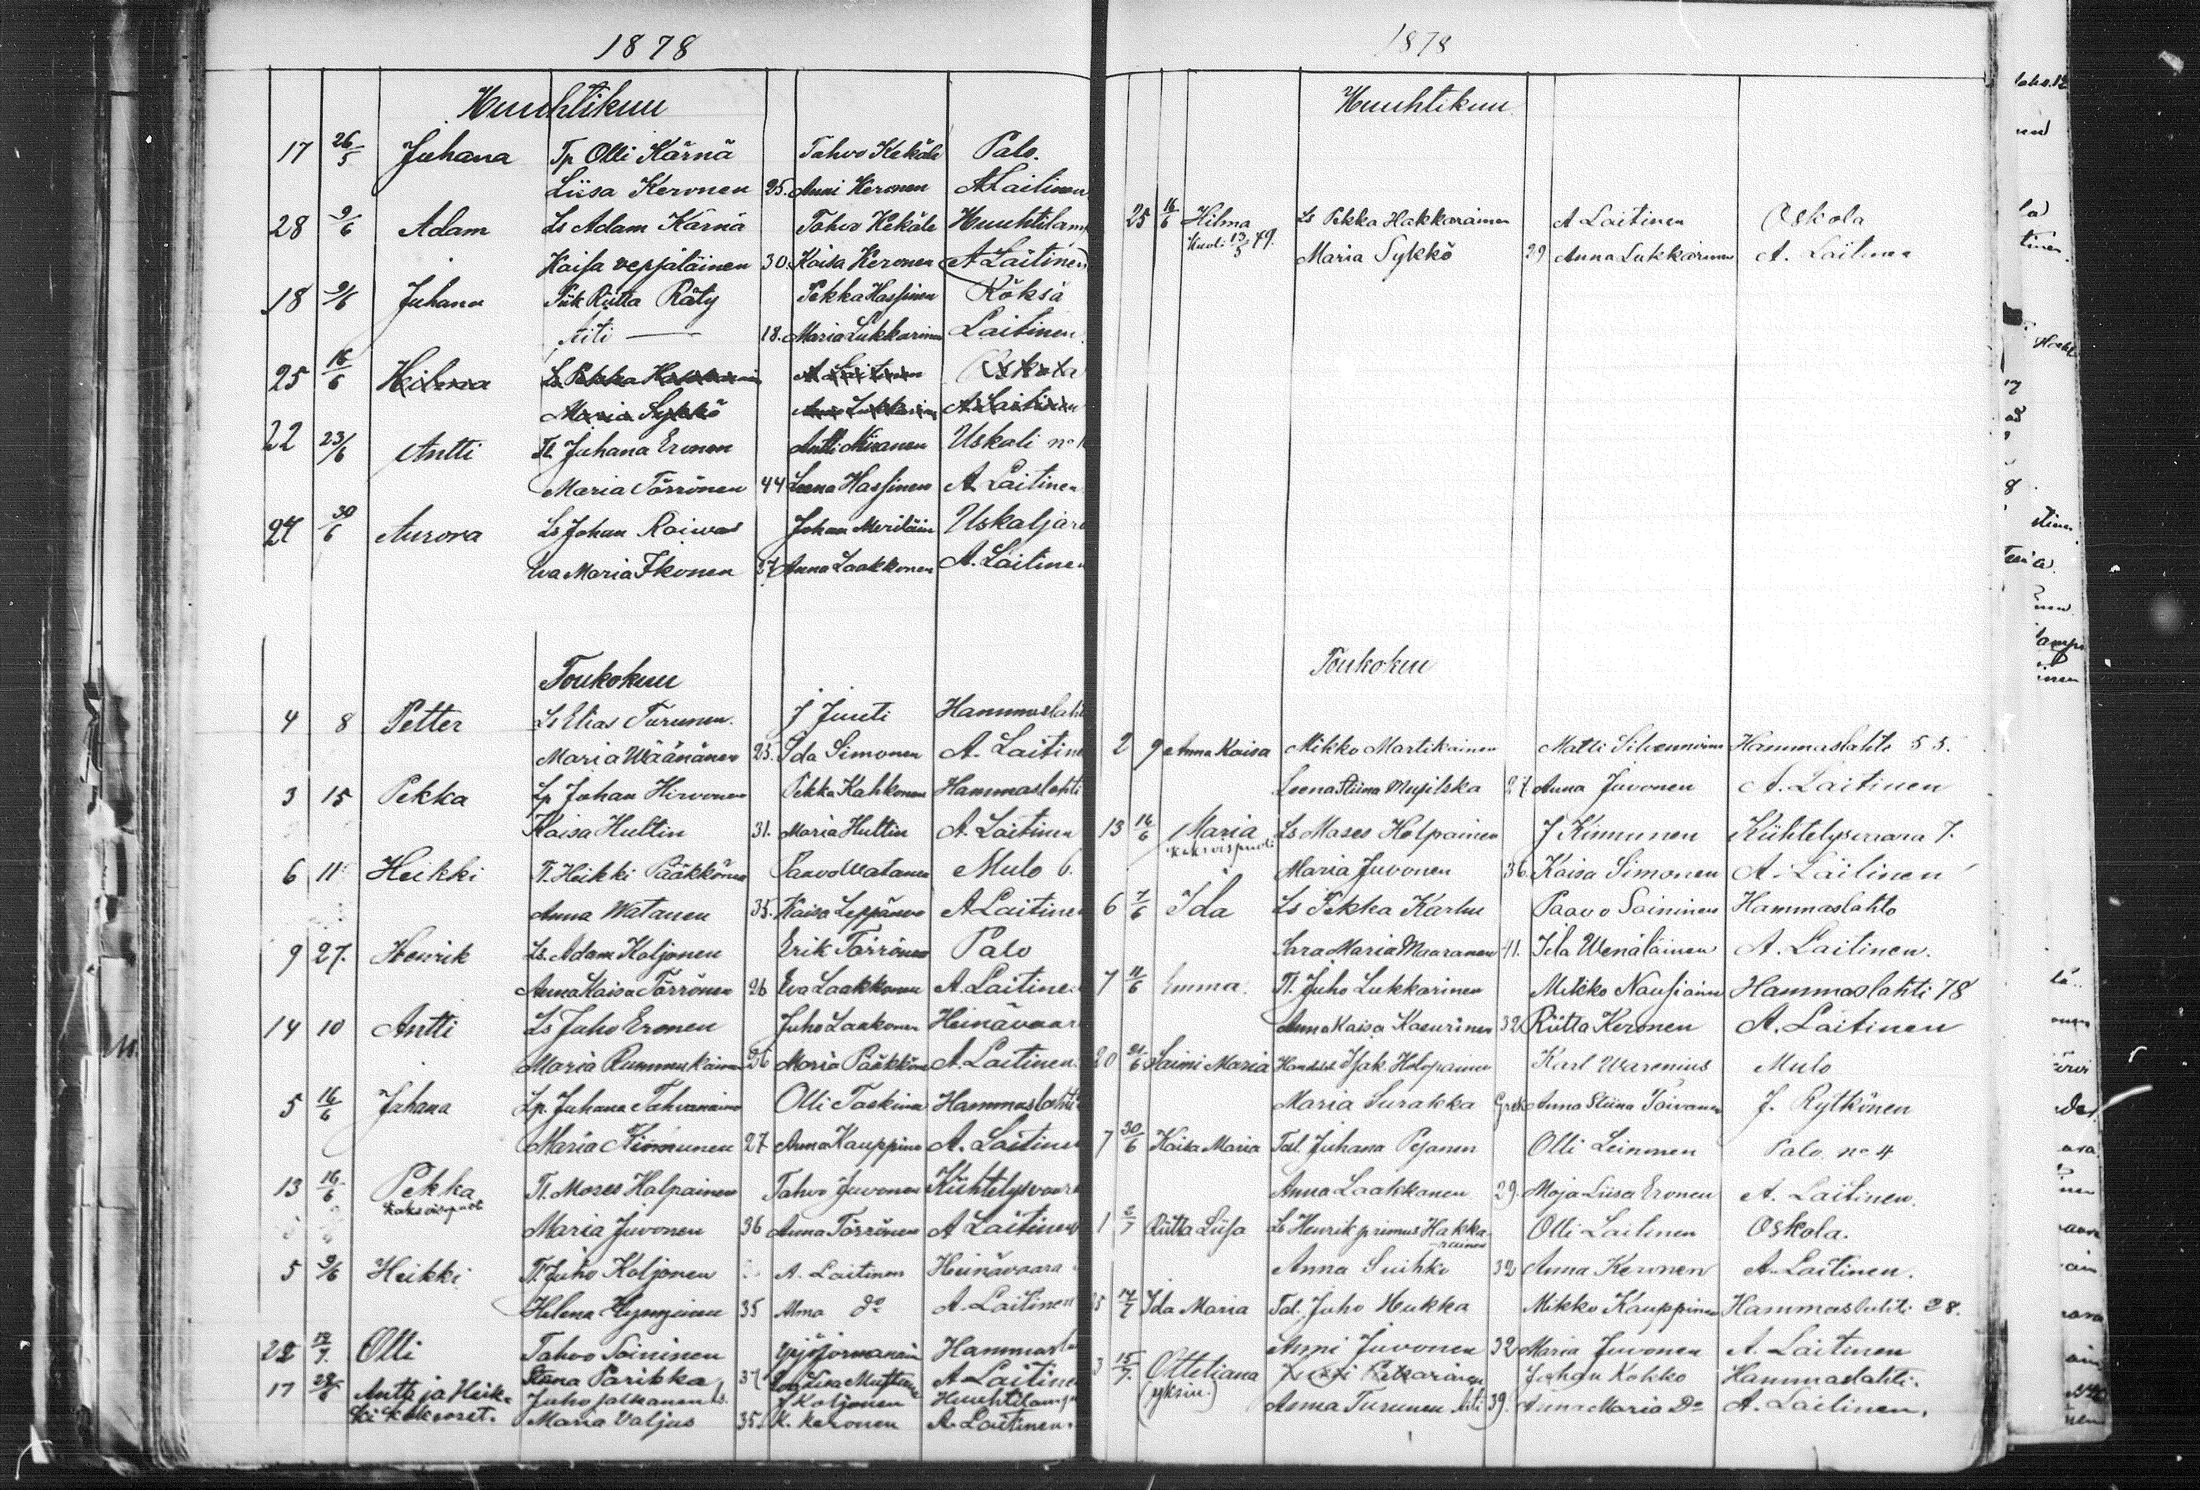 1878
Huuhtikuu
17 26/5 Juhana Tp Olli Kärnä Tahvo Kekäle Palo.
Liisa Keronen 25. Anni Keronen A Laitinen
28 9/6 Adam Ls Adam Kärnä Tahvo Kekäle
Kaisa 30. Kaisa Keronen A Laitinen
18 9/6 Juhana Piik Riitta Räty Pekka Hassinen Röksä
Äiti — 18. Maria Lukkarinen Laitinen
25 16/6 Hilma Ls Pekka A Laitinen Oskola
Maria Sykkö Anna Lukkarinen A Laitinen
22 23/6 Antti Tl. Juhana Eronen Antti Uskali no 1
Maria Törrönen 44 Leena Hassinen A Laitinen
27 30/6 Aurora Ls Johan Johan Uskaljär
Eva Maria Ikonen 27 Anna Laakkonen A. Laitinen
Toukokuu
4 8 Petter Ls Elias Turunen. J Juuti Hammaslaht
Maria Wäänänen 25. Ida Simonen A. Laitinen
3 15 Pekka Lp Johan Hirvonen Pekka Kahkonen Hammaslahti
Kaisa Hultin 31. Maria Hultin A. Laitinen
6 11 Heikki Tl. Heikki Pääkkönen Paavo Watanen Mulo 6.
Anna Watanen 35. Kaisa Leppänen A Laitinen
9 27. Henrik Ls. Adam Koljonen Erik Törrönen Palo
Anna Kaisa Törrönen 26 Eva Laakkonen A. Laitinen
14 10 Antti Ls Juho Eronen Juho Laakonen Heinävaara
Maria Rummukainen 26 Maria Pääkkönen A. Laitinen
5 16/6 Juhana Lp. Juhana Tahvanainen Olli Taskinen Hammaslahti
Maria Kinnunen 27 Anna Kauppinen A. Laitinen
13 16/6 Pekka Tl. Moses Holpainen Tahvo Juvonen Kiihtelysvaara
kaksoispuoli
Maria Juvonen 36 Anna Törrönen A Laitinen
5 9/6 Heikki Tl. Juho Koljonen A. Laitinen Heinävaara
Helena 35 Alma do A. Laitinen
22 14/7. Olli Tahvo Soininen Hammasla
Parikka 37 A Laitinen
17 Antti ja Heik- Juho Jalkanen Ls. Koljonen
ki kaksoset. Maria Valjus 35. K. Keronen A. Laitinen.
1878
Huuhtikuu
25 16/6 Hilma Ls Pekka Hakkarainen A Laitinen Oskola
Kuoli 13/5 79. Maria Sykkö 29 Anna Lukkarinen A. Laitinen
Toukokuu
2 9 Anna Kaisa Mikko Martikainen Matti Silvennoinen Hammaslahti 55.
Leena Stiina 27 Anna Juvonen A. Laitinen
13 16/6 Maria Ls Moses Holpainen J Kinnunen Kiihtelysvaara 7.
kaksoispuoli Maria Juvonen 36. Kaisa Simonen A. Laitinen
6 7/6 Ida Ls Pekka Karhu Paavo Soininen Hammaslahti
Sara Maria Maaranen 41. Ida Wenäläinen A. Laitinen.
7 11/6 Emma Tl. Juho Lukkarinen Mikko Hammaslahti 78
Anna Kaisa Kaurinen 32 Riitta Keronen A. Laitinen
20 21/6 Saimi Maria Isak Holopainen Karl Warenius Mulo
Maria Surakka Anna Stiina Toivanen J. Rytkönen
7 30/6 Kaisa Maria Tal. Juhana Pesonen Olli Leinonen Palo no 4
Anna Laakkonen 29. Maja Liisa Eronen A. Laitinen.
1 2/7 Riitta Liisa Ls Henrik primus Hakka- Olli Laitinen Oskola.
rainen
Anna Suihko 32 Anna Keronen A. Laitinen.
14/7 Ida Maria Tal. Juho Hukka Mikko Kauppinen Hammaslahti 28.
Anni Juvonen 32 Maria Juvonen A. Laitinen
3 15/7. Otteliana Johan Kokko Hammaslahti.
Anna Turunen 39. Anna Maria Do A. Laitinen.